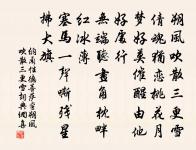 朔風吹散三更雪
倩魂猶戀桃花月
夢好莫催醒由他
好處行
無端聽畫角枕畔
紅冰薄
塞馬一聲嘶殘星
拂大旗
納蘭性德菩薩蠻朔風
吹散三更雪詞典網